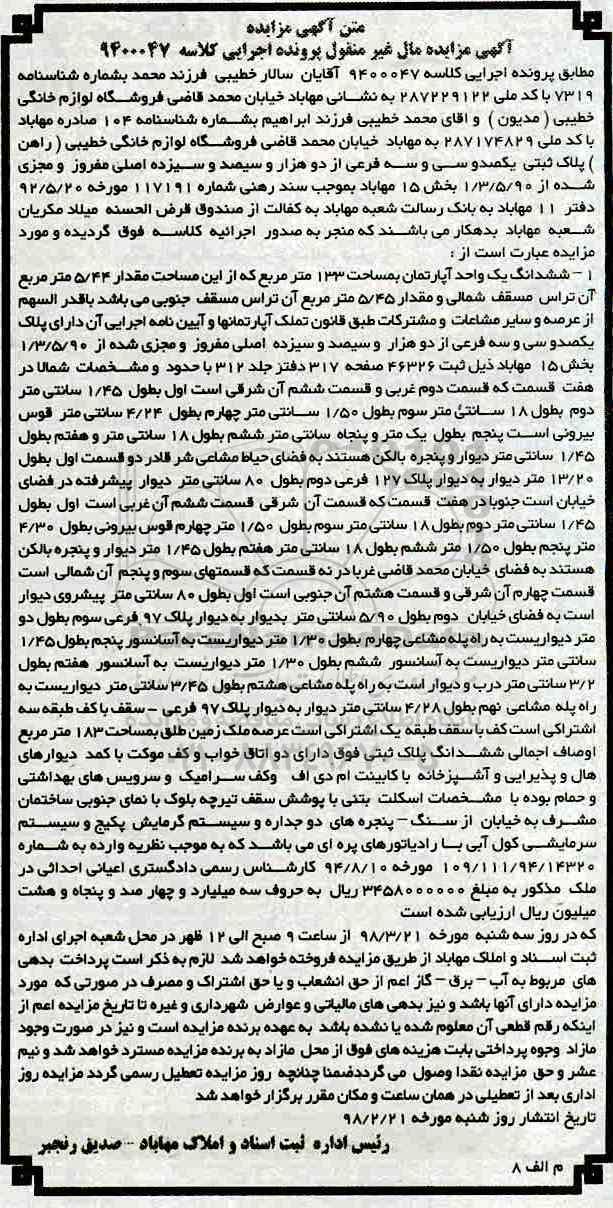 متن آگهی مزایده
آگهی مزایده مال غیر منقول پرونده اجرایی کلاسه ۹۴۰۰۰۴۷
مطابق پرونده اجرایی کلاسه ۹۴۰۰۰۴۷ آقایان سالار خطیبی فرزند محمد بشماره شناسنامه
۷۳۱۹ با کد ملی ۲۸۷۲۲۹۱۲۲ به نشانی مهاباد خیابان محمد قاضی فروشگاه لوازم خانگی
خطیبی ( مدیون ) و اقای محمد خطیبی فرزند ابراهیم بشماره شناسنامه ۱۰۴ صادره مهاباد
با کد ملی ۲۸۷۱۷۴۸۲۹ به مهاباد خیابان محمد قاضی فروشگاه لوازم خانگی خطیبی ( راهن
) پلاک ثبتی یکصدو سی و سه فرعی از دو هزار و سیصد و سیزده اصلی مفروز و مجزی
شده از ۱/۳/۵/۹۰ بخش ۱۵ مهاباد بموجب سند رهنی شماره ۱۱۷۱۹۱ مورخه ۹۲/۵/۲۰
دفتر ۱۱ مهاباد به بانک رسالت شعبه مهاباد به کفالت از صندوق قرض الحسنه میلاد مکریان
شعبه مهاباد بدهکار می باشند که منجر به صدور اجرائیه کلاسه فوق گردیده و مورد
مزایده عبارت است از :
۱ – ششدانگ یک واحد آپارتمان بمساحت ۱۳۳ متر مربع که از این مساحت مقدار ۵/۴۴ متر مربع
آن تراس مسقف شمالی و مقدار ۵/۴۵ متر مربع آن تراس مسقف جنوبی می باشد باقدر السهم
از عرصه و سایر مشاعات و مشترکات طبق قانون تملک آپارتمانها و آیین نامه اجرایی آن دارای پلاک
یکصدو سی و سه فرعی از دو هزار و سیصد و سیزده اصلی مفروز و مجزی شده از ۱/۳/۵/۹۰
بخش ۱۵ مهاباد ذیل ثبت ۴۶۳۲۶ صفحه ۳۱۷ دفتر جلد ۳۱۲ با حدود و مشخصات شمالا در
هفت قسمت که قسمت دوم غربی و قسمت ششم آن شرقی است اول بطول ۱/۴۵ سانتی متر
دوم بطول ۱۸ سانتی متر سوم بطول ۱/۵۰ سانتی متر چهارم بطول ۴/۲۴ سانتی متر قوس
بیرونی است پنجم بطول یک متر و پنجاه سانتی متر ششم بطول ۱۸ سانتی متر و هفتم بطول
۱/۴۵ سانتی متر دیوار و پنجره بالکن هستند به فضای حیاط مشاعی شر قادر دو قسمت اول بطول
۱۳/۲۰ متر دیوار به دیوار پلاک ۱۲۷ فرعی دوم بطول ۸۰ سانتی متر دیوار پیشرفته در فضای
خیابان است جنوبا در هفت قسمت که قسمت آن شرقی قسمت ششم آن غربی است اول بطول
۱/۴۵ سانتی متر دوم بطول ۱۸ سانتی متر سوم بطول ۱/۵۰ متر چهارم قوس بیرونی بطول ۴/۳۰
متر پنجم بطول ۱/۵۰ متر ششم بطول ۱۸ سانتی متر هفتم بطول ۱/۴۵ متر دیوار و پنجره بالکن
هستند به فضای خیابان محمد قاضی غربا در نه قسمت که قسمتهای سوم و پنجم آن شمالی است
قسمت چهارم آن شرقی و قسمت هشتم آن جنوبی است اول بطول ۸۰ سانتی متر پیشروی دیوار
است به فضای خیابان دوم بطول ۵/۹۰ سانتی متر بدیوار به دیوار پلاک ۹۷ فرعی سوم بطول دو
متر دیواریست به راه پله مشاعی چهارم بطول ۱/۳۰ متر دیواریست به آسانسور پنجم بطول ۱/۴۵
سانتی متر دیواریست به آسانسور ششم بطول ۱/۳۰ متر دیواریست به آسانسور هفتم بطول
۳/۲ سانتی متر درب و دیوار است به راه پله مشاعی هشتم بطول ۳/۴۵ سانتی متر دیواریست به
راه پله مشاعی نهم بطول ۴/۲۸ سانتی متر دیوار به دیوار پلاک ۹۷ فرعی – سقف با کف طبقه سه
اشتراکی است کف با سقف طبقه یک اشتراکی است عرصه ملک زمین طلق بمساحت ۱۸۳ متر مربع
اوصاف اجمالی ششدانگ پلاک ثبتی فوق دارای دو اتاق خواب و کف موکت با کمد دیوارهای
هال و پذیرایی و آشپزخانه با کابینت ام دی اف وکف سرامیک و سرویس های بهداشتی
و حمام بوده با مشخصات اسکلت بتنی با پوشش سقف تیرچه بلوک با نمای جنوبی ساختمان
مشرف به خیابان از سنگ – پنجره های دو جداره و سیستم گرمایش پکیج و سیستم
سرمایشی کول آبی با رادیاتورهای پره ای می باشد که به موجب نظریه وارده به شماره
۱۰۹/۱۱۱/۹۴/۱۴۳۲۰ مورخه ۹۴/۸/۱۰ کارشناس رسمی دادگستری اعیانی احداثی در
ملک مذکور به مبلغ ۳۴۵۸۰۰۰۰۰۰ ریال به حروف سه میلیارد و چهار صد و پنجاه و هشت
میلیون ریال ارزیابی شده است
که در روز سه شنبه مورخه ۹۸/۳/۲۱ از ساعت ۹ صبح الی ۱۲ ظهر در محل شعبه اجرای اداره
ثبت اسناد و املاک مهاباد از طریق مزایده فروخته خواهد شد لازم به ذکر است پرداخت بدهی
های مربوط به آب – برق – گاز اعم از حق انشعاب و یا حق اشتراک و مصرف در صورتی که مورد
مزایده دارای آنها باشد و نیز بدهی های مالیاتی و عوارض شهرداری و غیره تا تاریخ مزایده اعم از
اینکه رقم قطعی آن معلوم شده یا نشده باشد به عهده برنده مزایده است و نیز در صورت وجود
مازاد وجوه پرداختی بابت هزینه های فوق از محل مازاد به برنده مزایده مسترد خواهد شد و نیم
عشر و حق مزایده نقدا وصول می گرددضمنا چنانچه روز مزایده تعطیل رسمی گردد مزایده روز
اداری بعد از تعطیلی در همان ساعت و مکان مقرر برگزار خواهد شد
تاریخ انتشار روز شنبه مورخه ۹۸/۲/۲۱
رئیس اداره ثبت اسناد و املاک مهاباد – صدیق رنجبر
م الف ۸